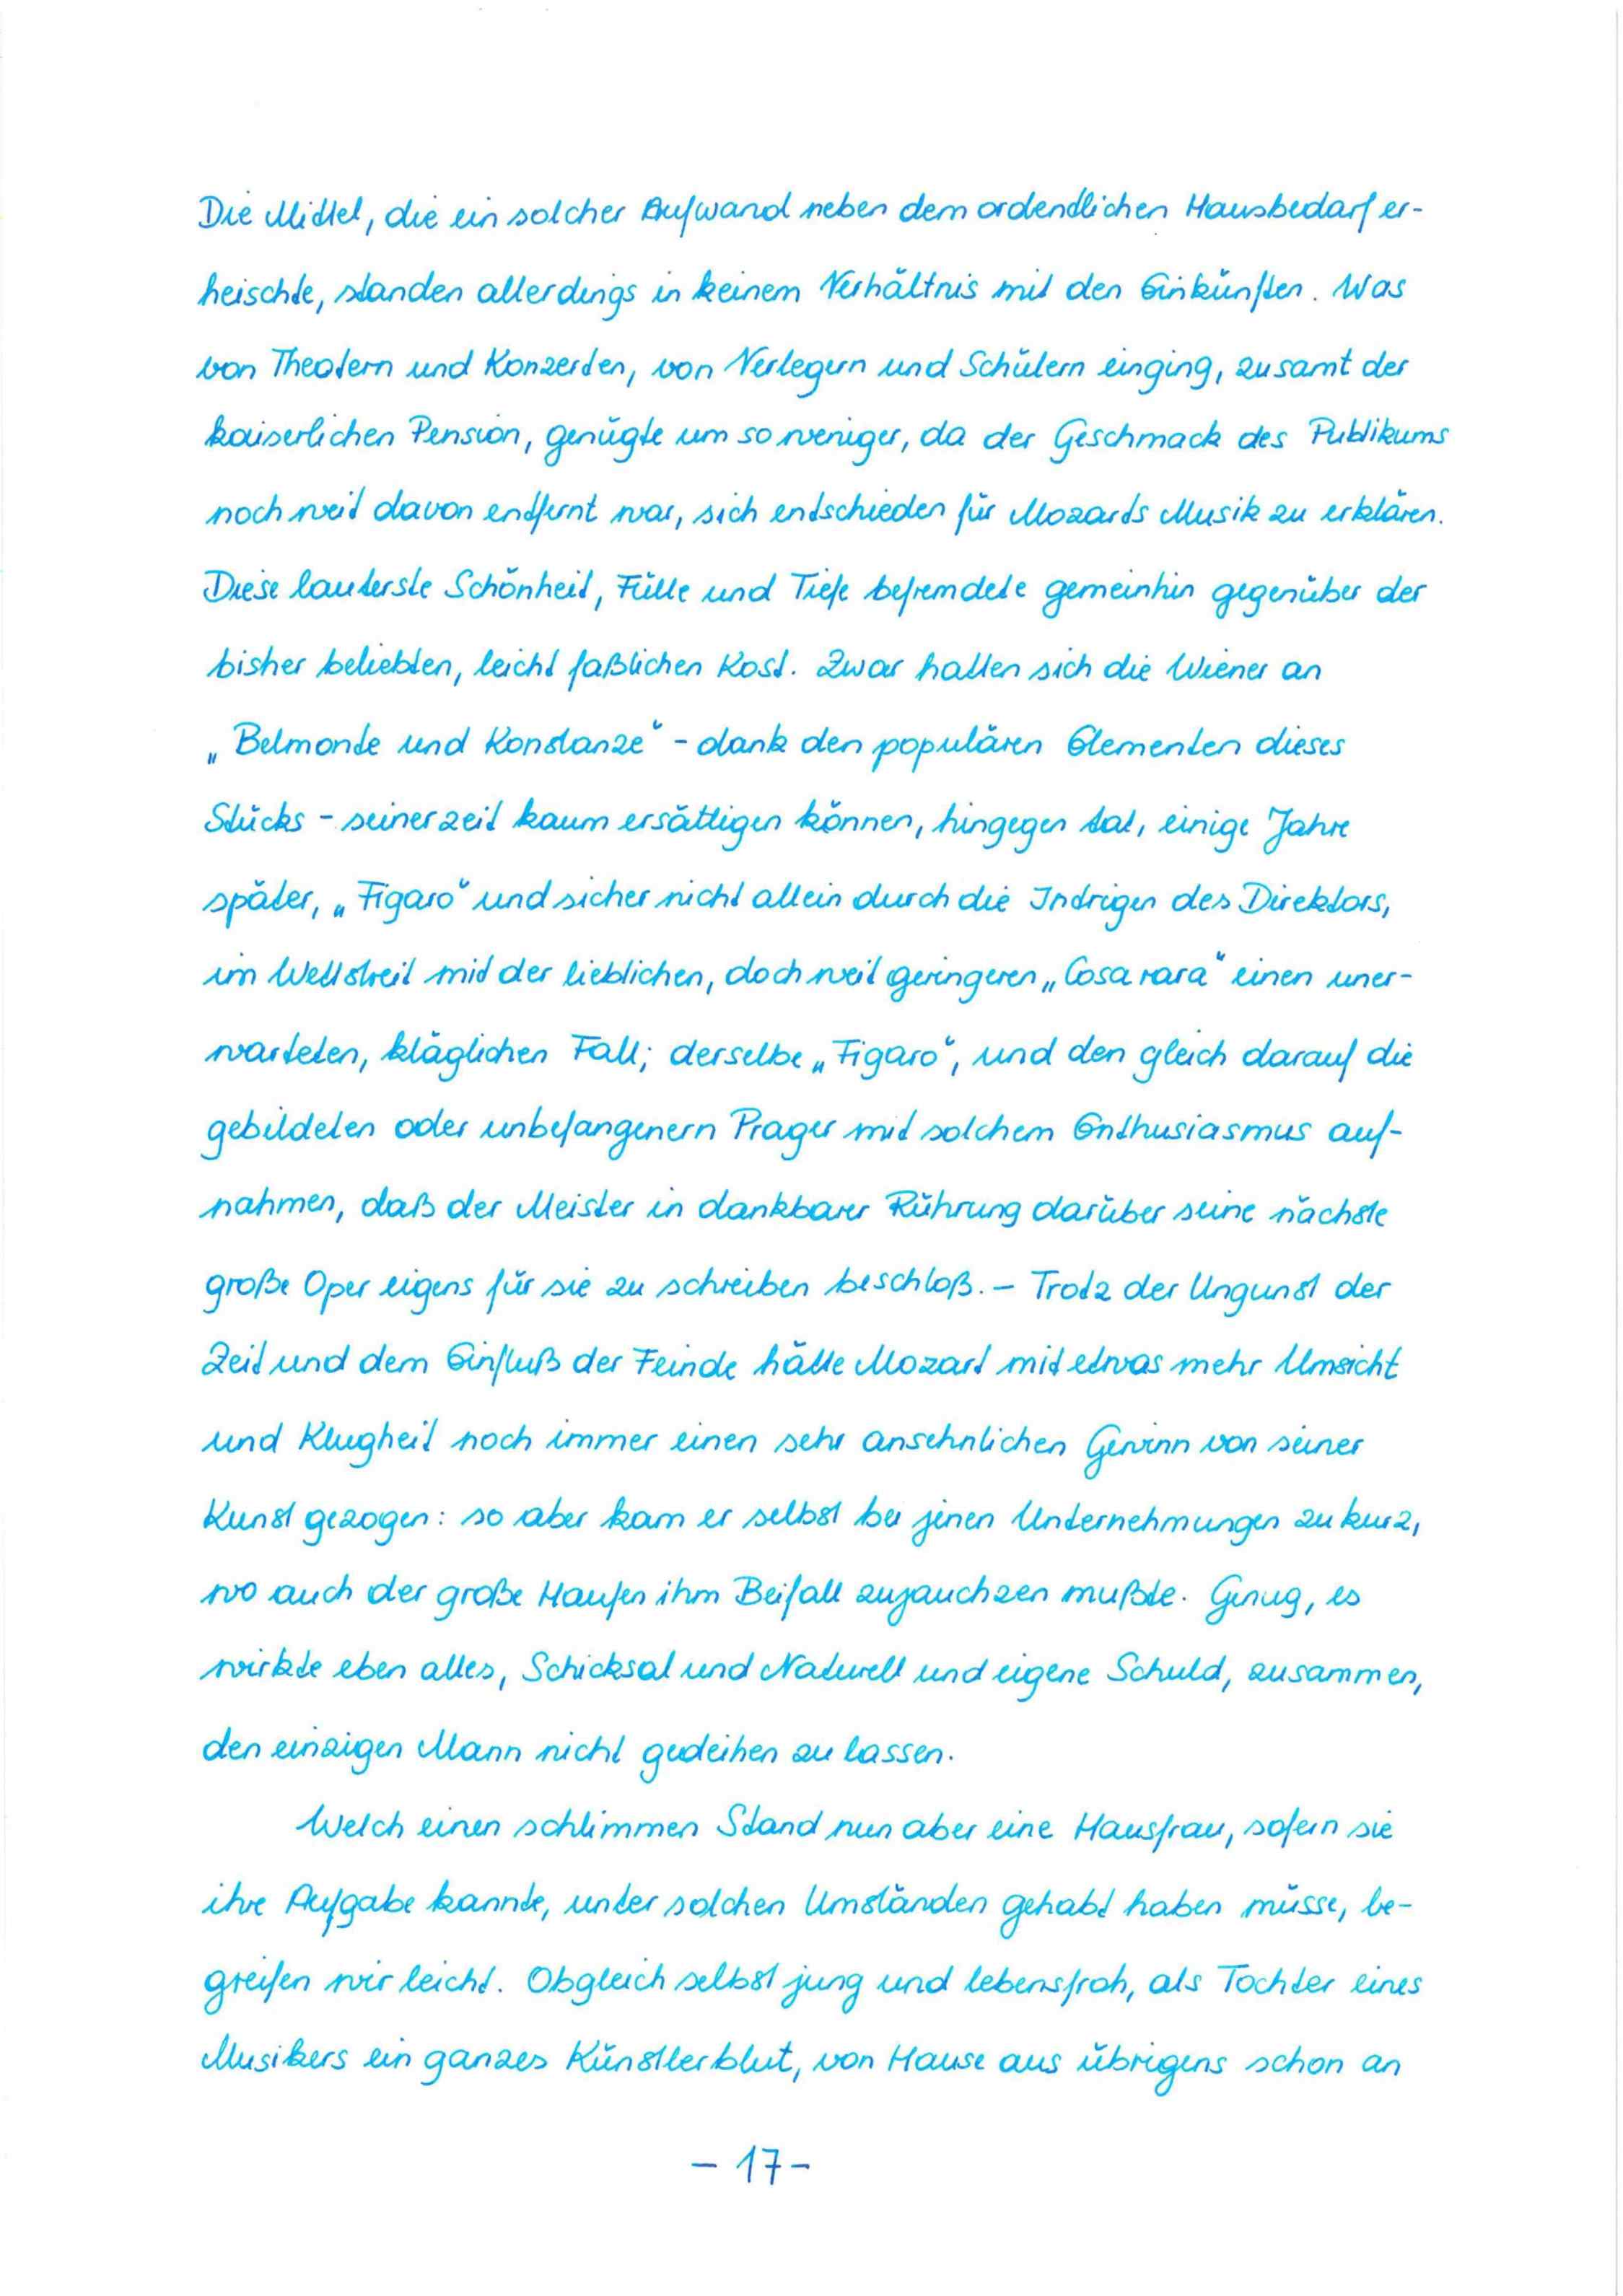 Die Mittel, die ein solcher Aufwand neben dem ordentlichen Hausbedarf er-
heischte, standen allerdings in keinem Verhältnis mit den Einkünften. Was
von Theatern und Konzerten, von Verlegern und Schülern einging, zusamt der
kaiserlichen Pension, genügte um so weniger, da der Geschmack des Publikums
noch weit davon entfernt war, sich entschieden für Mozarts Musik zu erklären.
Diese lauterste Schönheit, Fülle und Tiefe befremdete gemeinhin gegenüber der
bisher beliebten, leicht faßlichen Kost. Zwar hatten sich die Wiener an
„Belmonte und Konstanze" - dank den populären Elementen dieses
Stücks - seinerzeit kaum ersättigen können, hingegen tat, einige Jahre
später, „Figaro" und sicher nicht allein durch die Intrigen des Direktors,
im Wettstreit mit der lieblichen, doch weit geringeren „Cosa rara" einen uner-
warteten, kläglichen Fall; derselbe „Figaro", und den gleich darauf die
gebildeten oder unbefangenern Prager mit solchem Enthusiasmus auf-
nahmen, daß der Meister in dankbarer Rührung darüber seine nächste
große Oper eigens für sie zu schreiben beschloß. – Trotz der Ungunst der
Zeit und dem Einfluß der Feinde hätte Mozart mit etwas mehr Umsicht
und Klugheit noch immer einen sehr ansehnlichen Gewinn von seiner
Kunst gezogen: so aber kam er selbst bei jenen Unternehmungen zu kurz,
wo auch der große Haufen ihm Beifall zujauchzen mußte. Genug, es
wirkte eben alles, Schicksal und Naturell und eigene Schuld, zusammen,
den einzigen Mann nicht gedeihen zu lassen.
Welch einen schlimmen Stand nun aber eine Hausfrau, sofern sie
ihre Aufgabe kannte, unter solchen Umständen gehabt haben müsse, be-
greifen wir leicht. Obgleich selbst jung und lebensfroh, als Tochter eines
Musikers ein ganzes Künstlerblut, von Hause aus übrigens schon an
- 17 -